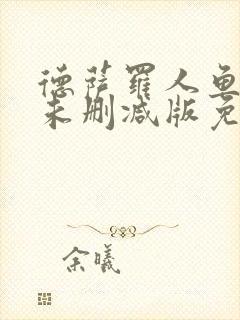 德萨罗人鱼
未删减版免
余曦